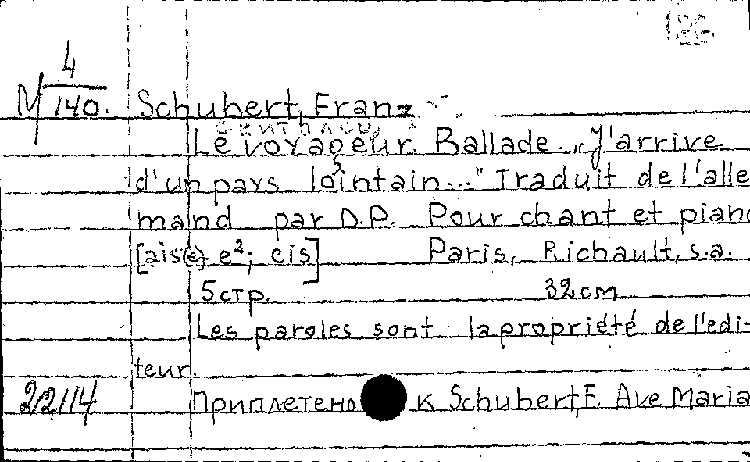 M 4/140. Schubert, Franz
Le voyageur. Ballade. „J'arrive
d'un pays lointain..." Traduit de l'alle
mand par D.P. Pour chant et piano
[ais(è) e²; cis] Paris, Richault, s.a.
5 стр. 32 см
Les paroles sont la propriété de l'edi-
teur.
2/2114 Приплетено к Schubert, F. Ave Maria